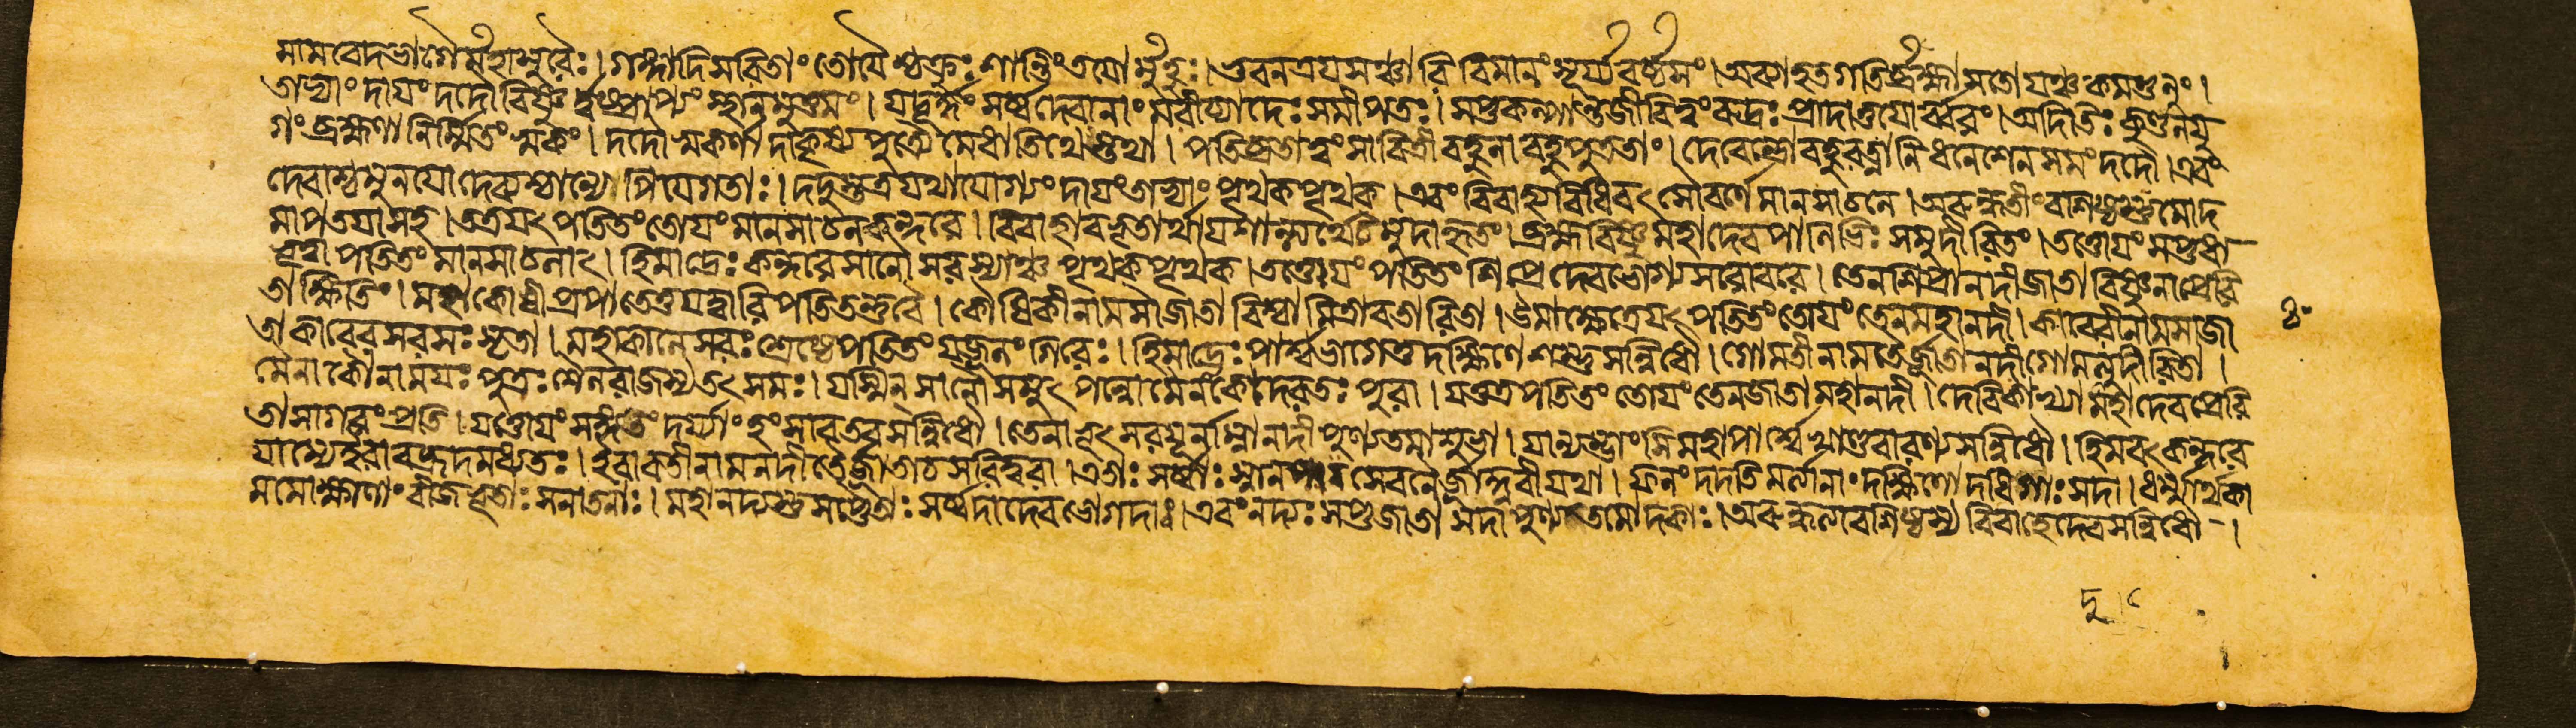 মামবোদভাগৈর্মহাসুরৈঃ। গঙ্গাদিসরিতাং তোয়ৈশ্চক্রুঃ শান্তিং তয়োর্মুহুঃ। ভুবনত্রয়সঞ্চারি বিমানং সূর্য্যবর্চ্চসং। অব্যাহতগতির্ব্রহ্মা সতোয়ঞ্চ কমণ্ডলুং।
তাভ্যাং দায়ং দদৌ বিষ্ণুর্দুষ্প্রাপ্যং স্থানমুত্তমং। যদূর্দ্ধং সর্ব্বদেবানাং মরীচ্যাদেঃ সমীপতঃ। সপ্তকল্পান্তজীবিত্বং রুদ্রঃ প্রাদাত্তয়োর্ব্বরং। অদিতিঃ কুণ্ডলযু
গং ব্রহ্মণা নির্ম্মিতং স্বকং। দদৌ স্বকর্ণাদাকৃষ্য পুত্র্যৈ মেধাতিথেস্তথা। পতিব্রতাত্বং সাবিত্রী বহুলা বহুপুত্রতাং। দেবেন্দ্রো বহুরত্নানি ধনেশেন সমং দদৌ। এবং
দেবাশ্চ মুনয়ো দেব্যশ্চান্যেপি যেগতাঃ। দদুস্তত্র যথাযোগ্যং দায়ং তাভ্যাং পৃথক্ পৃথক্। এবং বিবাহ্য বিধিবৎ সৌবর্ণে মানসাচলে। অরুন্ধতীং বাশিষ্ঠস্তু মোদ
মাপ তয়া সহ। তত্র যৎ পতিতং তোয়ং মানসাচলকন্দরে। বিবাহাবভৃতার্থায় শান্ত্যর্থঞ্চ সমুদাহৃতং। ব্রহ্মবিষ্ণুমহাদেবপাণিভিঃ সমুদীরিতং। তত্তোয়ং সপ্তধা
ভূত্বা পতিতং মানসাচলাৎ। হিমাদ্রেঃ কন্দরে সানৌ সরস্যাঞ্চ পৃথক্ পৃথক্। তত্তোয়ং পতিতং শিপ্রে দেবভোগ্য সরোবরে। তেন শিপ্রা নদী জাতা বিষ্ণুনা প্রেরি
তা ক্ষিতিং। মহাকোষীপ্রপাতে তু যদ্বারি পতিতন্তু বৈ। কৌষিকী নাম সা জাতা বিশ্বামিত্রাবতারিতা। উমাক্ষেত্রে যৎ পতিতং তোয়ং তেন মহানদী। কাবেরী নাম সা জা
তা কাবেরসরসঃ সৃতা। মহাকালে সরঃ শ্রেষ্ঠে পতিতং যজ্জলং গিরেঃ। হিমাদ্রেঃ পার্শ্বভাগে তু দক্ষিণে শম্ভুসন্নিধৌ। গোমতী নাম তৈর্জাতা নদী গোমদুদীরিতা।
মৈনাকো নাম যঃ পুত্রঃ শৈলরাজস্য তৎ সমঃ। যস্মিন্ সানৌ সমুৎপান্নো মেনকোদরতঃ পুরা। যত্তত্র পতিতং তোয়ং তেন জাতা মহানদী। দেবিকাখ্যা মহাদেবপ্রেরি
তা সাগরং প্রতি। যত্তোয়ং সঙ্গতং দর্য্যাং হংসাবতারসন্নিধৌ। তেনাভূৎ সরযূর্নাম্না নদী পুণ্যতমা শুভা। যান্যম্ভাংসি মহাপার্শ্বে খাণ্ডবারণ্যসন্নিধৌ। হিমবৎ কন্দরে
যাম্যে ইরাহ্রদমধ্যতঃ। ইরাবতী নাম নদী তৈর্জাতা চ সরিদ্বরা। এতাঃ সর্ব্বাঃ স্নানপান সেবনৈর্জাহ্নবী যথা। ফলং দদতি মর্ত্যানাং দক্ষিণোদধিগাঃ সদা। ধর্ম্মার্থকা
মমোক্ষাণাং বীজভূতাঃ সনাতনাঃ। মহানদ্যস্তু সপ্তৈতাঃ সর্ব্বদা দেবভোগদাঃ। এবং নদ্যঃ সপ্ত জাতা সদা পুণ্যতমোদকাঃ। অরুন্ধত্যা বশিষ্ঠস্য বিবাহে দেবসন্নিধৌ।